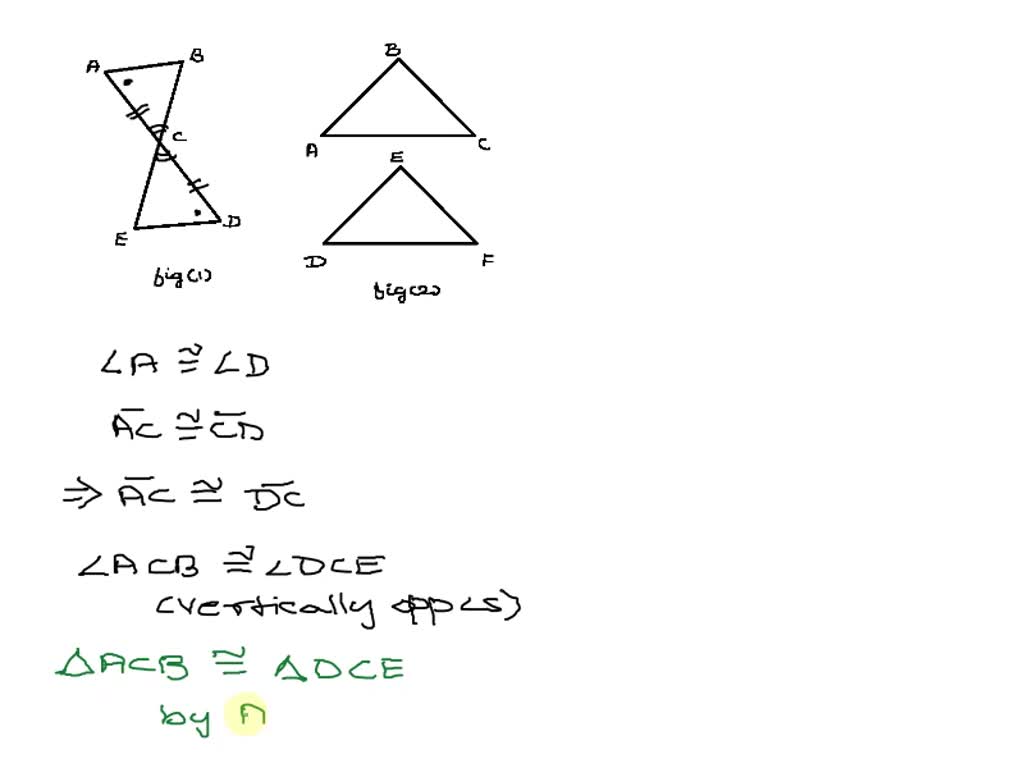 A B
C
E D
fig(1)
B
A C
E
D F
fig(2)
∠A ≅ ∠D
A̅C̅ ≅ C̅D̅
⇒ A̅C̅ ≅ D̅C̅
∠ACB ≅ ∠DCE
(vertically opp ∠s)
△ACB ≅ △DCE
by A